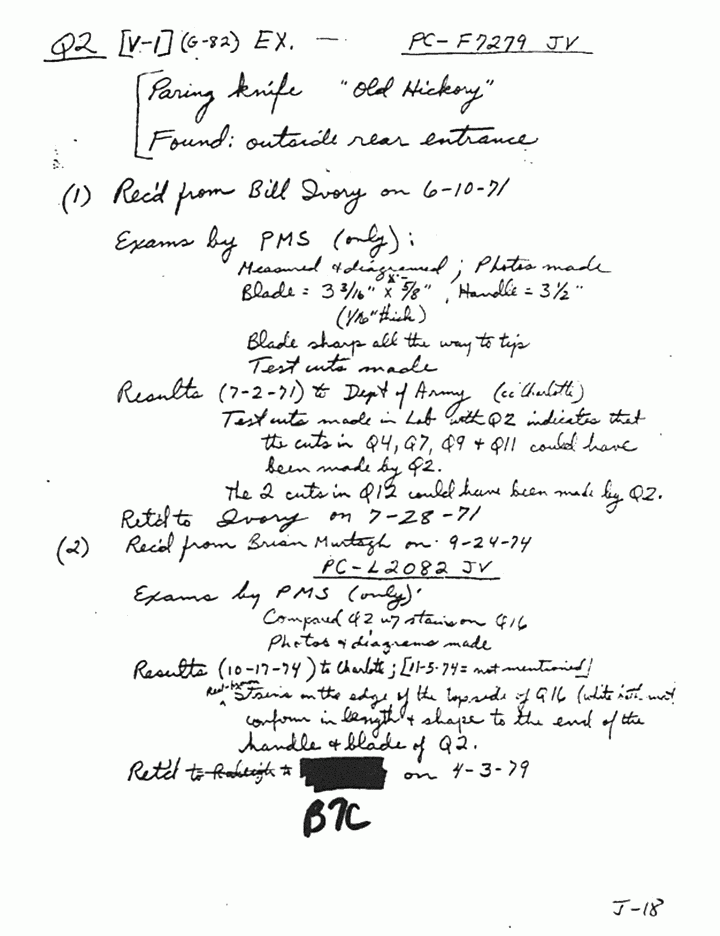 Q2 [V-1] (G-82) EX. — PC-F7279 JV
Paring knife "Old Hickory"
Found: outside rear entrance
(1) Rec'd from Bill Ivory on 6-10-71
Exams by PMS (only):
Measured & diagramed; Photos made
Blade = 3 3/16" x 5/8", Handle = 3 1/2"
(1/16" thick)
Blade sharp all the way to tip
Test cuts made
Results (7-2-71) to Dept of Army (cc Charlotte)
Test cuts made in Lab with Q2 indicates that
the cuts in Q4, Q7, Q9 & Q11 could have
been made by Q2.
The 2 cuts in Q12 could have been made by Q2.
Ret'd to Ivory on 7-28-71
(2) Rec'd from Brian Murtagh on 9-24-74
PC-L2082 JV
Exams by PMS (only):
Compared Q2 w/ stains on Q16
Photos & diagrams made
Results (10-17-74) to Charlotte; [11-5-74 = not mentioned]
Red-brown
Stains on the edge of the topside of Q16 (white
conform in length & shape to the end of the
handle & blade of Q2.
Ret'd to Raleigh to on 4-3-79
B7C
J-18